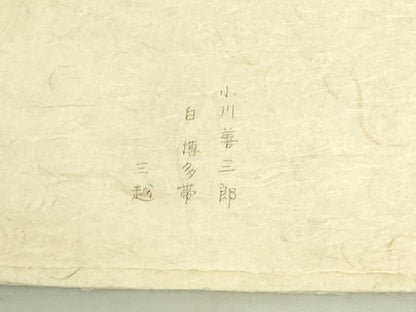 小川善三郎
白 博多帯
三越